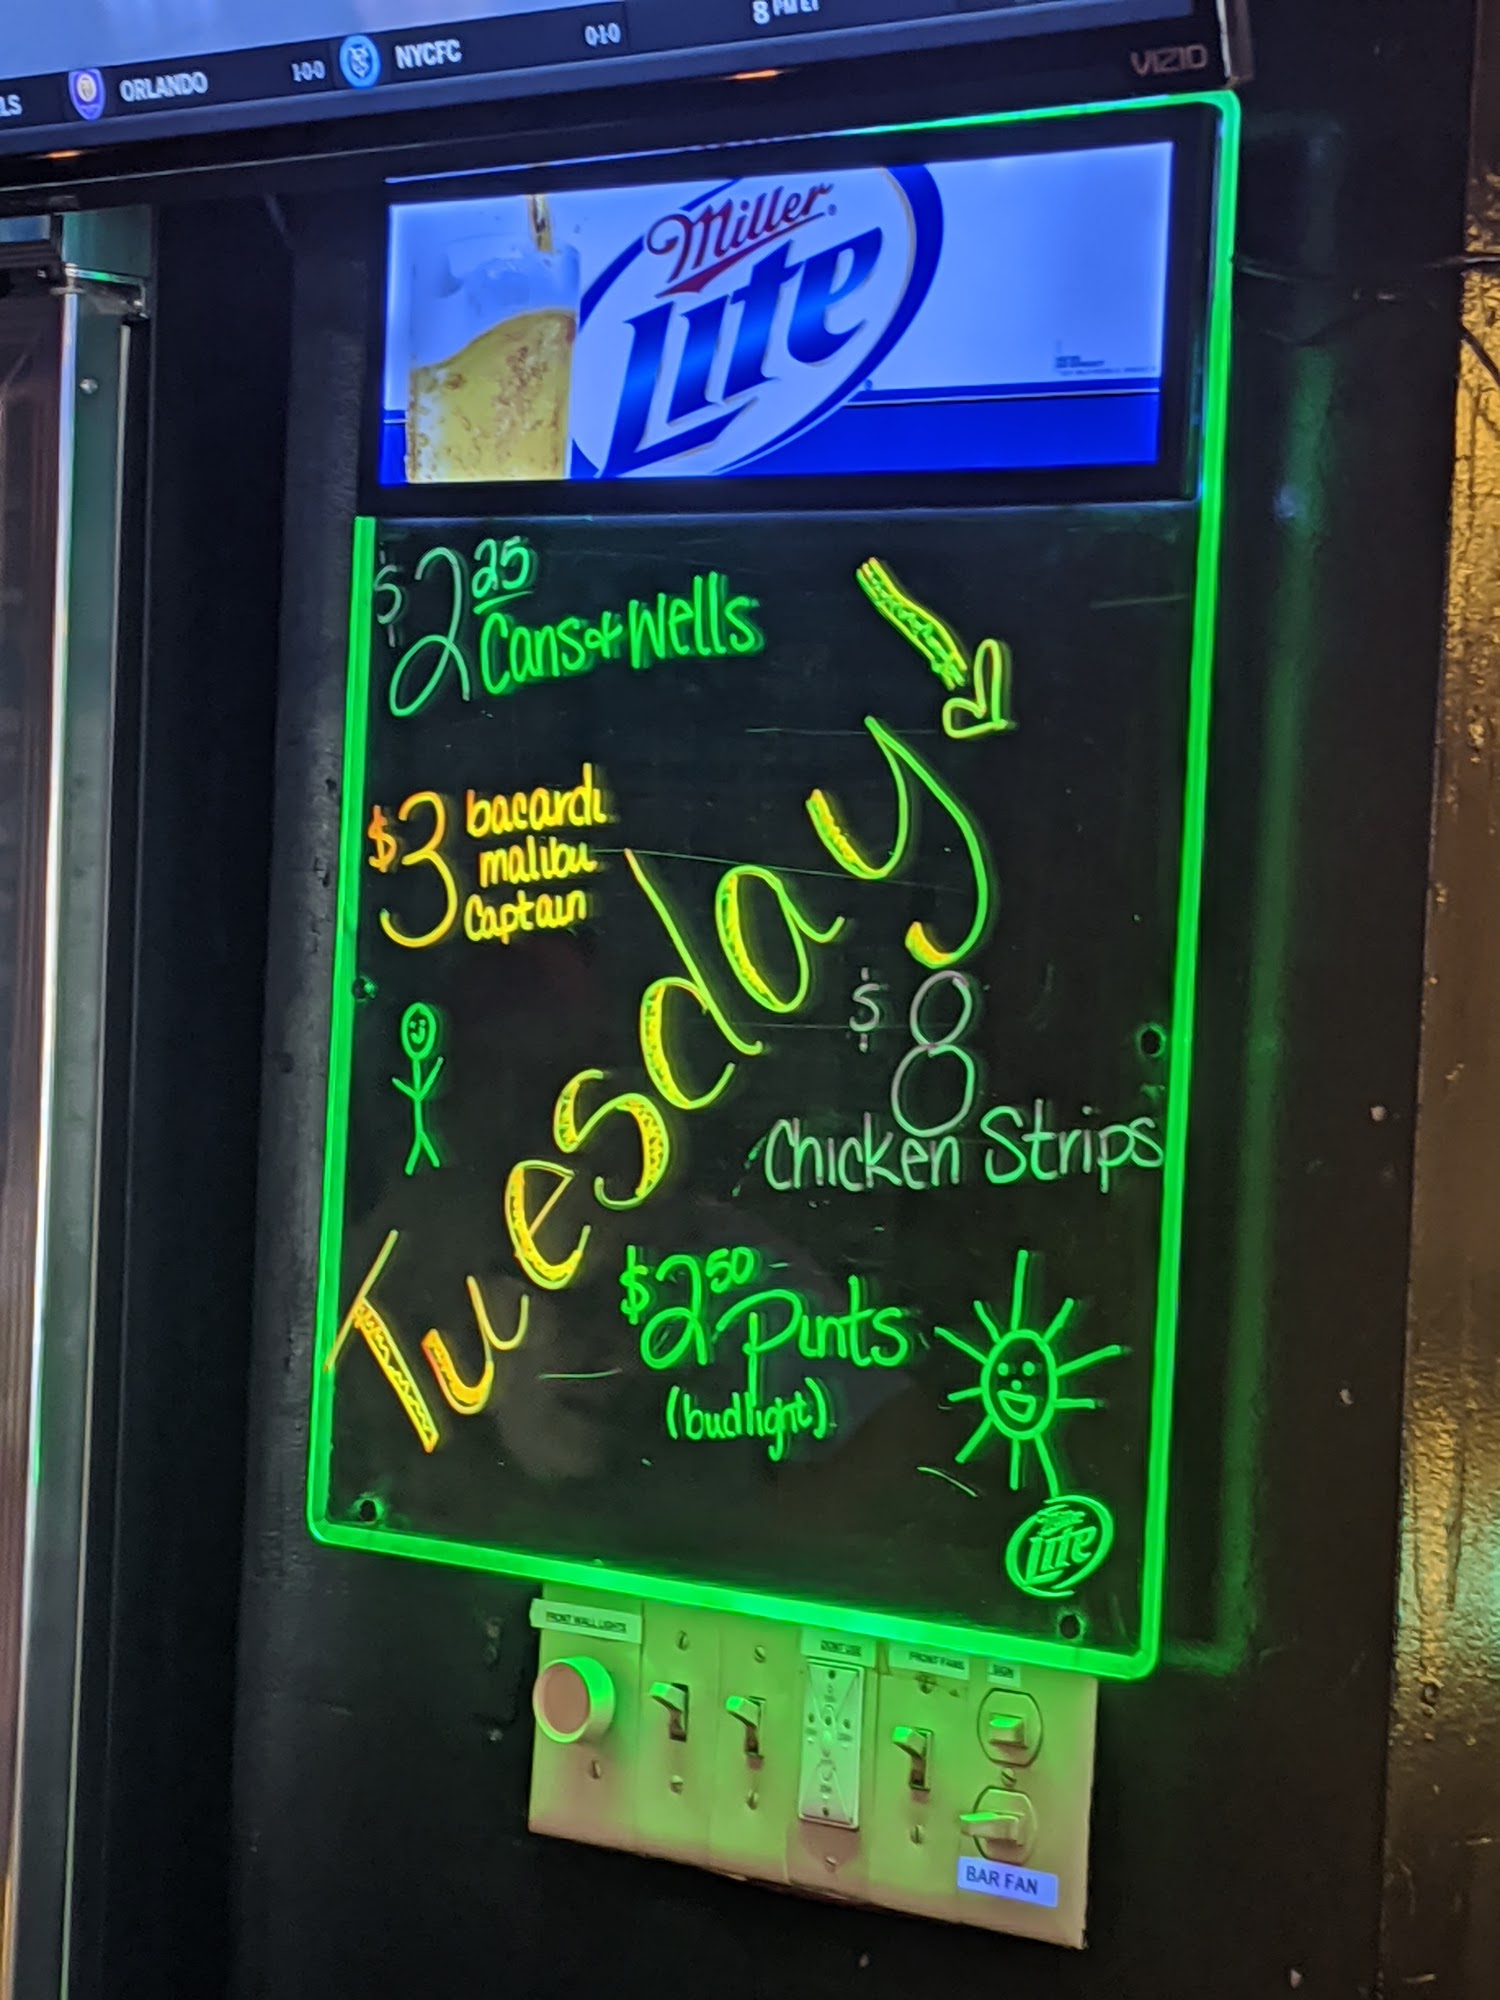 LS ORLANDO 1-0-0 NYCFC 0-1-0 8 PM ET
VIZIO
Miller
Lite
$2 25 Cans & Wells
$3 bacardi
malibu
Captain
Tuesday
$8
Chicken Strips
$2 50 Pints
(bud light)
Miller
Lite
FRONT WALL LIGHTS
DONT USE
FRONT FANS
SIGN
BAR FAN